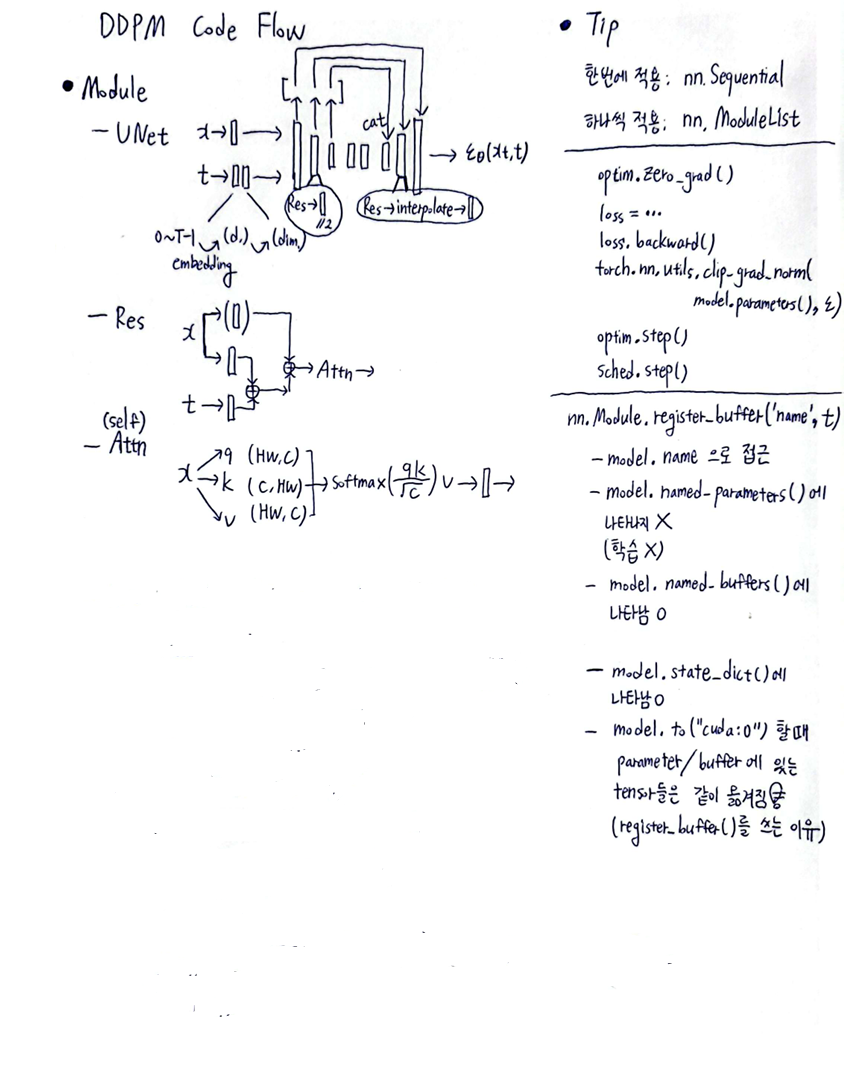 DDPM Code Flow
• Module
– UNet
x→
t→
cat
→ ε_θ(xt,t)
Res→
//2
Res→interpolate→
0~T-1 (d,) (dim,)
embedding
– Res
x
t→
→Attn→
(self)
– Attn
x
q (HW,C)
k (C,HW)
v (HW,C)
→ softmax(qk/√C) v →
• Tip
한번에 적용: nn.Sequential
하나씩 적용: nn.ModuleList
optim.zero_grad()
loss = ...
loss.backward()
torch.nn.utils.clip_grad_norm(
model.parameters(), ε)
optim.step()
sched.step()
nn.Module.register_buffer('name', t)
– model.name 으로 접근
– model.named-parameters()에
나타나지 X
(학습 X)
– model.named-buffers()에
나타남 O
– model.state_dict()에
나타남 O
– model.to("cuda:0") 할때
parameter/buffer에 있는
tensor들은 같이 옮겨짐
(register_buffer()를 쓰는 이유)